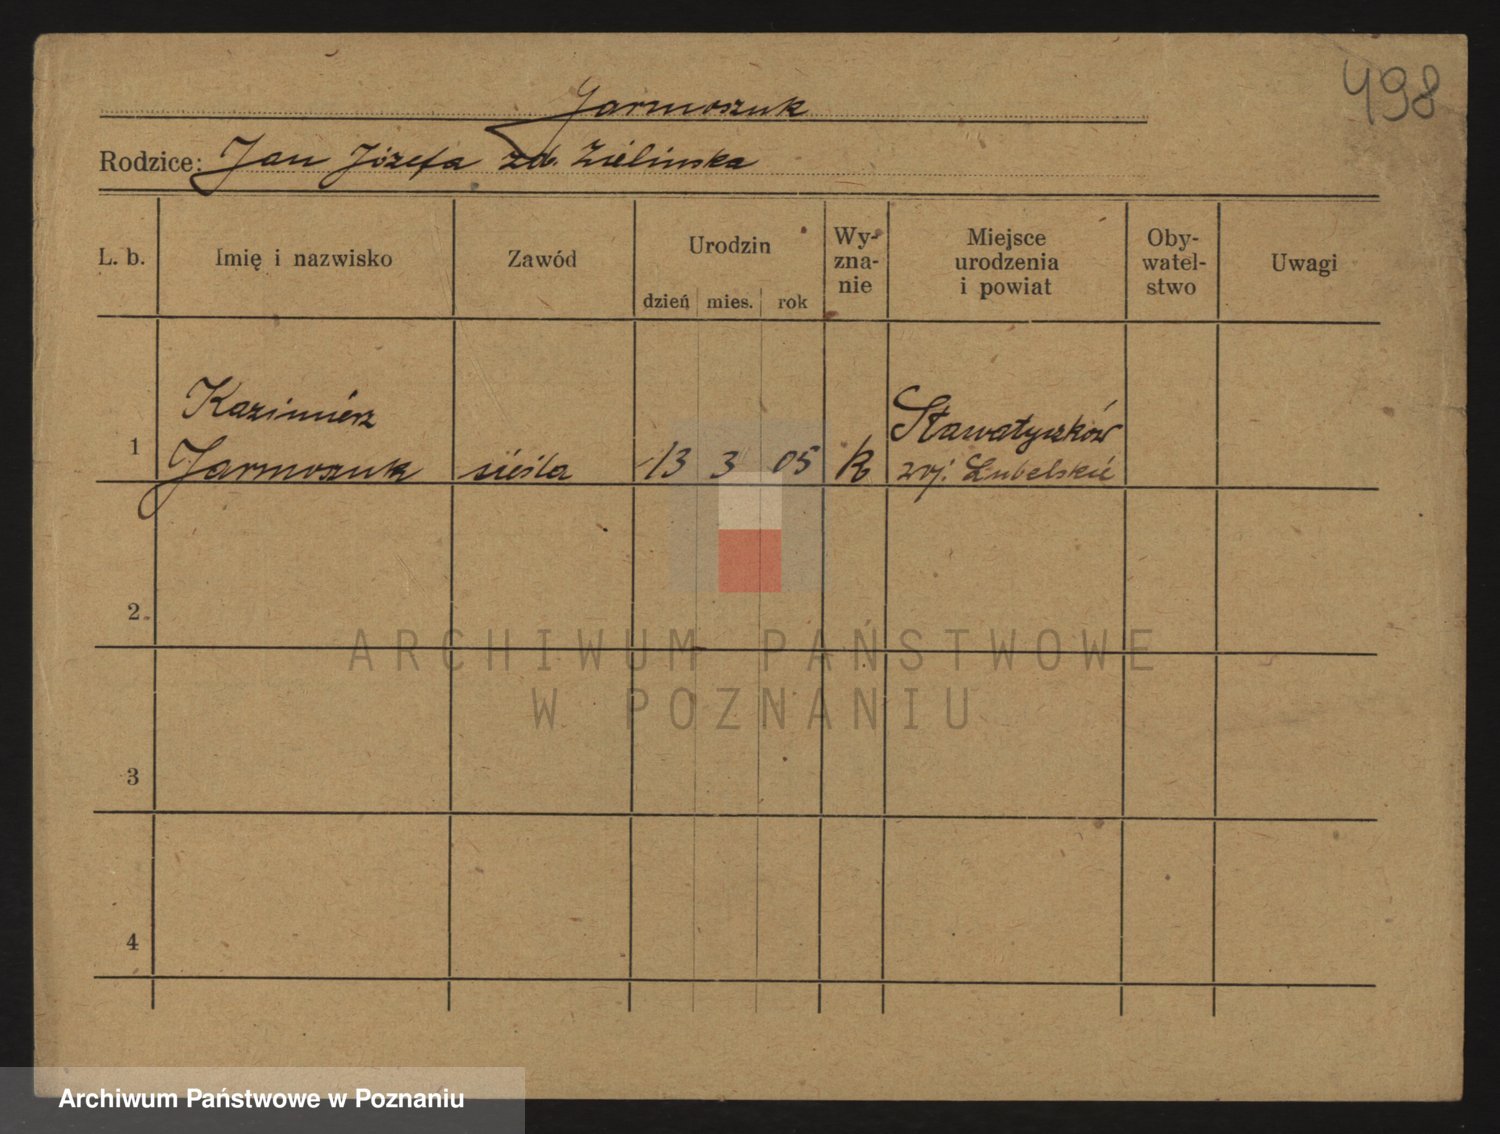 498
Jarmoszuk
Rodzice: Jan Józefa zd. Zielinska
L. b.
Imię i nazwisko
Zawód
Urodzin
dzień mies. rok
Wy-
zna-
nie
Miejsce
urodzenia
i powiat
Oby-
watel-
stwo
Uwagi
1
Kazimierz
Jarmoszuk
cieśla
13 3 05
k
woj. Lubelskie
2
3
4
ARCHIWUM PAŃSTWOWE
W POZNANIU
Archiwum Państwowe w Poznaniu